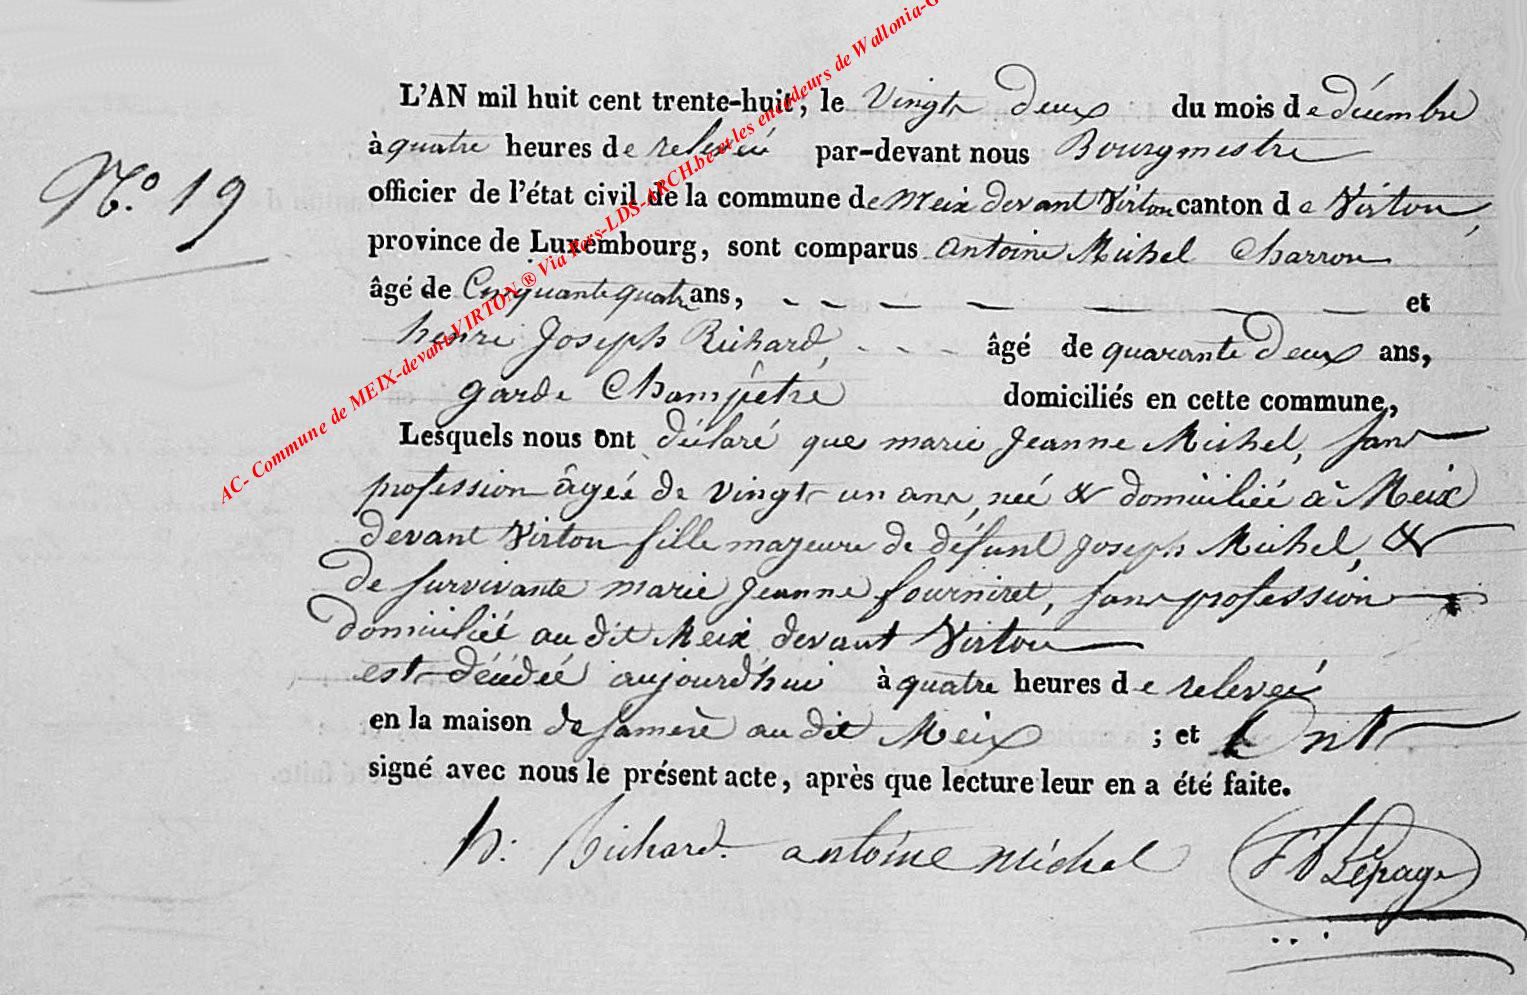 AC- Commune de MEIX-devant-VIRTON ® Via Pers-LDS-ARCH.be et les encodeurs de Wallonia-G
N.° 19
L'AN mil huit cent trente-huit, le Vingt deux du mois de décembre
à quatre heures de relevée par-devant nous Bourgmestre
officier de l'état civil de la commune de Meix devant Virton canton de Virton,
province de Luxembourg, sont comparus antoine Michel Charron
âgé de Cinquante quatre ans, - - - - - - - et
henri Joseph Richard, - - - âgé de quarante deux ans,
garde Champêtre domiciliés en cette commune,
Lesquels nous ont déclaré que marie Jeanne Michel, sans
profession âgée de vingt un ans, née & domiciliée à Meix
devant Virton fille majeure de défunt Joseph Michel, &
de survivante marie Jeanne fourniret, sans profession
domiciliée au dit Meix devant Virton
est décédée aujourd'hui à quatre heures de relevée
en la maison de sa mère au dit Meix ; et Ont
signé avec nous le présent acte, après que lecture leur en a été faite.
h. Richard. antoine Michel Lepage